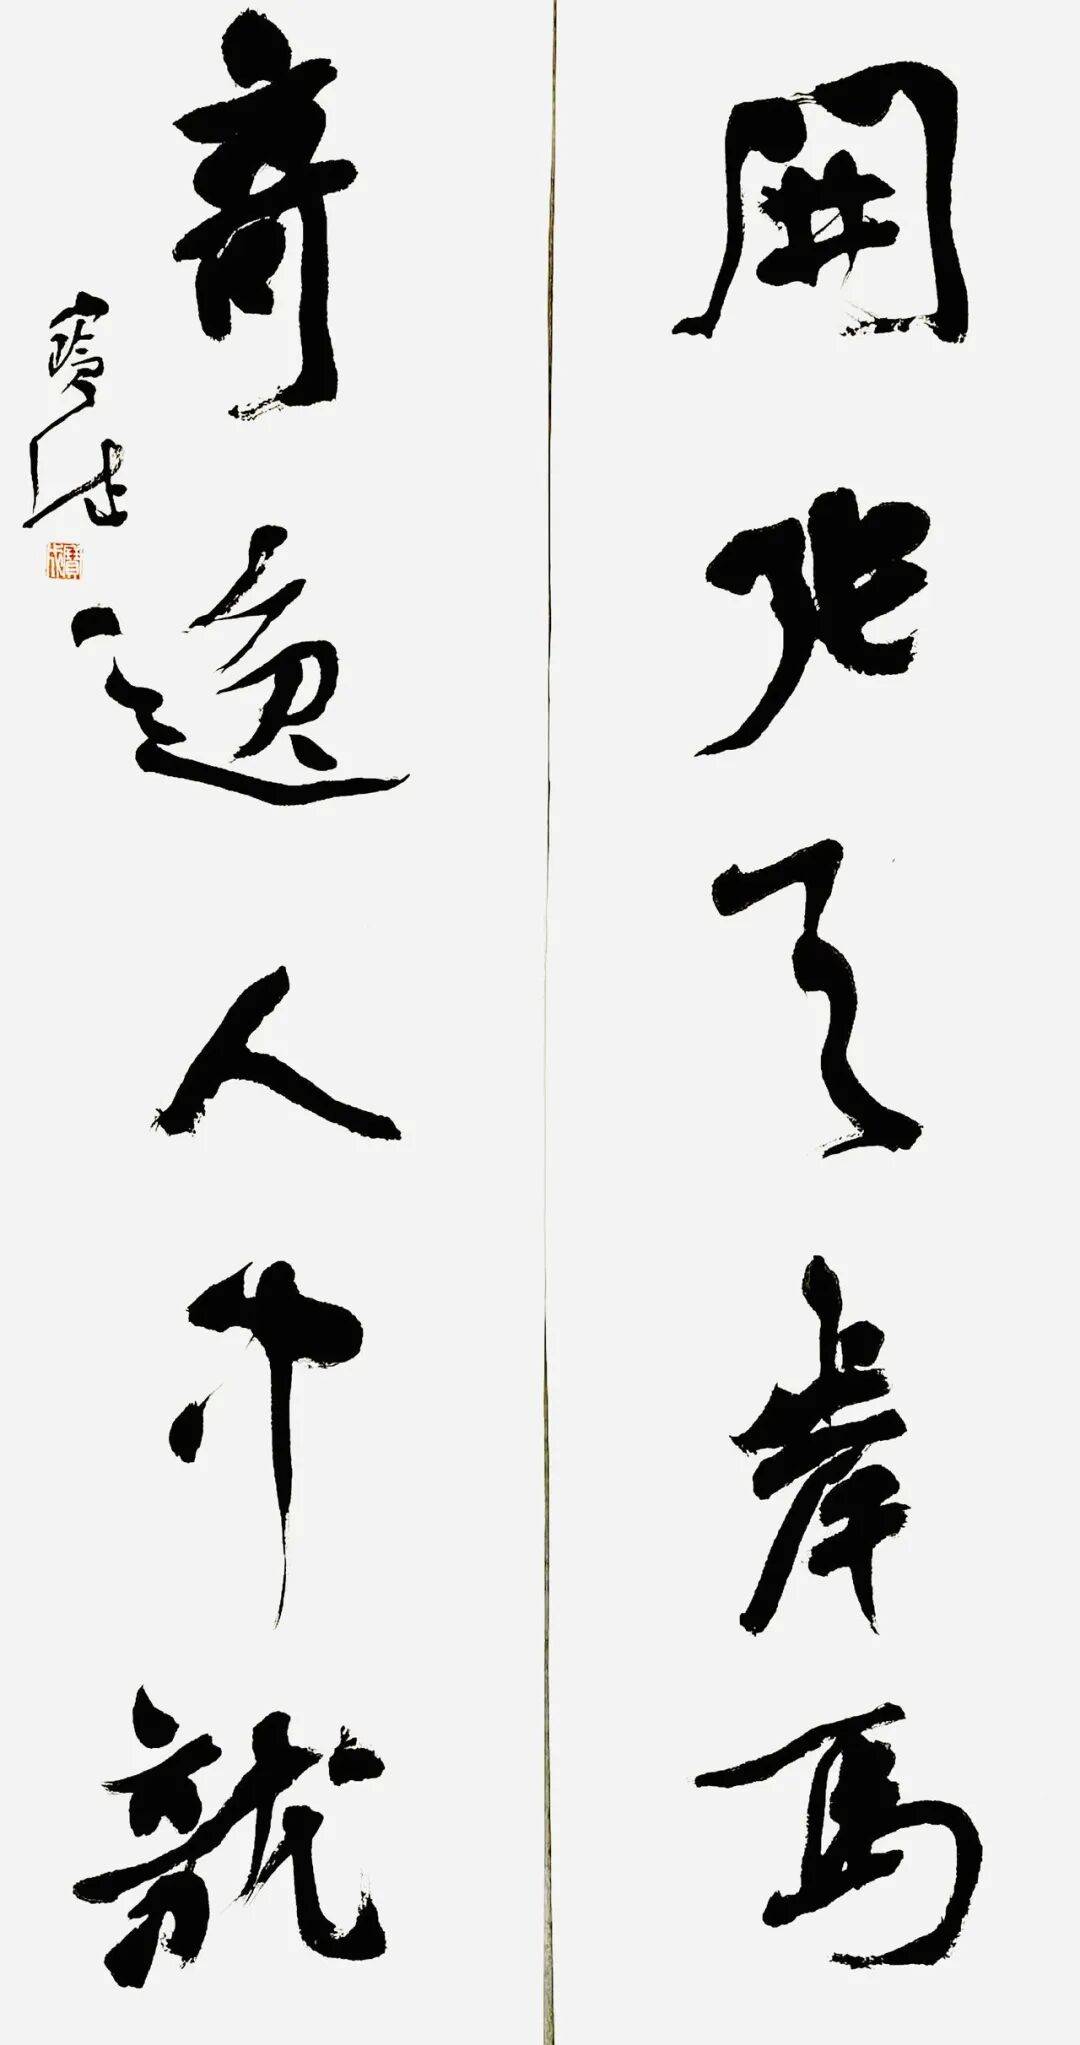 開張天岸馬
奇逸人中龍
寶